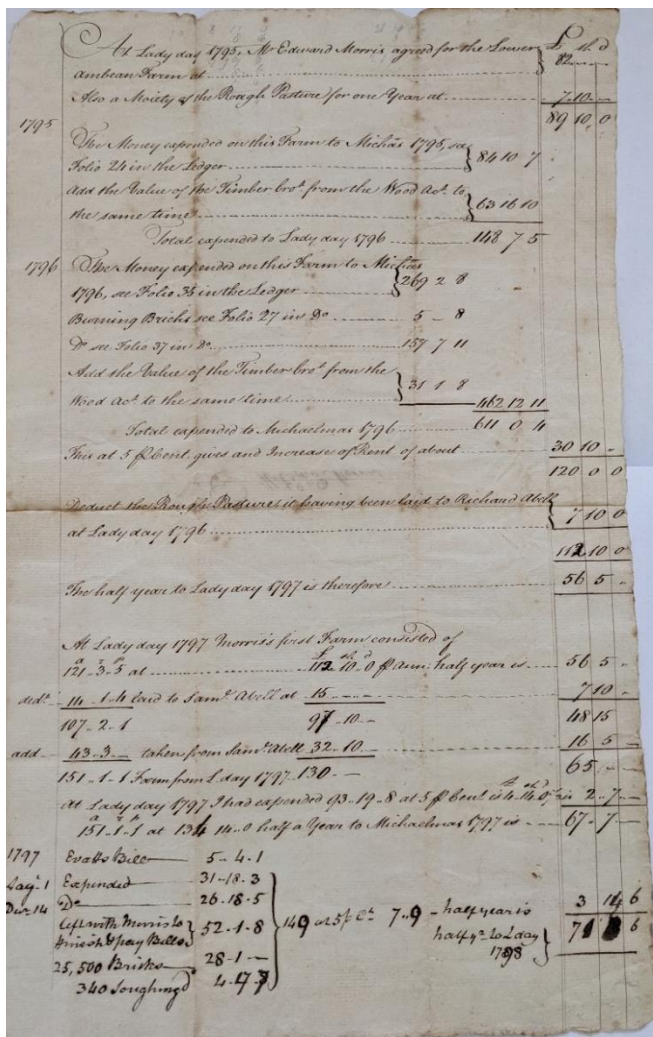 £ sh d
At Lady day 1795, Mr Edward Morris agreed for the Lower
ambean Farm at } 82 - -
Also a Moiety of the Rough Pasture for one Year at 7 . 10 . -
1795 89 10 0
The Money expended on this Farm to Michãs 1795, see
Folio 24 in the Ledger } 84 10 7
Add the Value of the Timber bro.t from the Wood Ac.t to
the same time } 63 16 10
Total expended to Lady day 1796 148 7 5
1796 The Money expended on this Farm to Michãs
1796, see Folio 35 in the Ledger } 269 2 8
Burning Bricks see Folio 27 in D.o 5 - 8
D.o see Folio 37 in D.o 157 7 11
Add the Value of the Timber bro.t from the
Wood Ac.t to the same time } 31 1 8 462 12 11
Total expended to Michaelmas 1796 611 0 4
This at 5 ⅌ Cent. gives and Increase of Rent of about 30 10 -
120 0 0
Deduct the Rough Pastures it having been laid to Richard Abell
at Lady day 1796 } 7 10 0
112 10 0
The half year to Lady day 1797 is therefore 56 5 -
At Lady day 1797 Morris's first Farm consisted of
a r p £ sh d
121 - 3 - 5 at 112 10 - 0 ⅌ Ann: half year is 56 5 -
ded.t 14 - 1 - 4 laid to Sam.l Abell at 15 - - 7 10 -
107 - 2 - 1 97 - 10 - 48 15
add 43 - 3 - taken from Sam.l Abell 32 - 10 - 16 5 -
151 - 1 - 1 Farm from L. day 1797 130 - 65 - -
At Lady day 1797 I had expended 93 - 19 - 8 at 5 ⅌ Cent is £4 sh14 d0 is 2 - 7 -
a r p
151 - 1 - 1 at 134 14 - 0 half a Year to Michaelmas 1797 is 67 - 7 -
1797 Evatts Bill 5 - 4 . 1
Expended 31 - 18 . 3
D.o 26 - 18 . 5
Left with Morris to
finish & pay Bills } 52 - 1 - 8 } 149 at 5 p C.t 7 . 9 - half year is 3 14 6
25,500 Bricks 28 - 1 - half y.r to L day
1798 }
340 Soughing